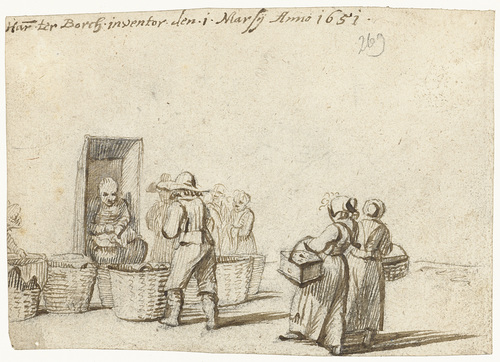 Har. ter Borch. inventor. den. 1. Marsij Anno 1651.
269